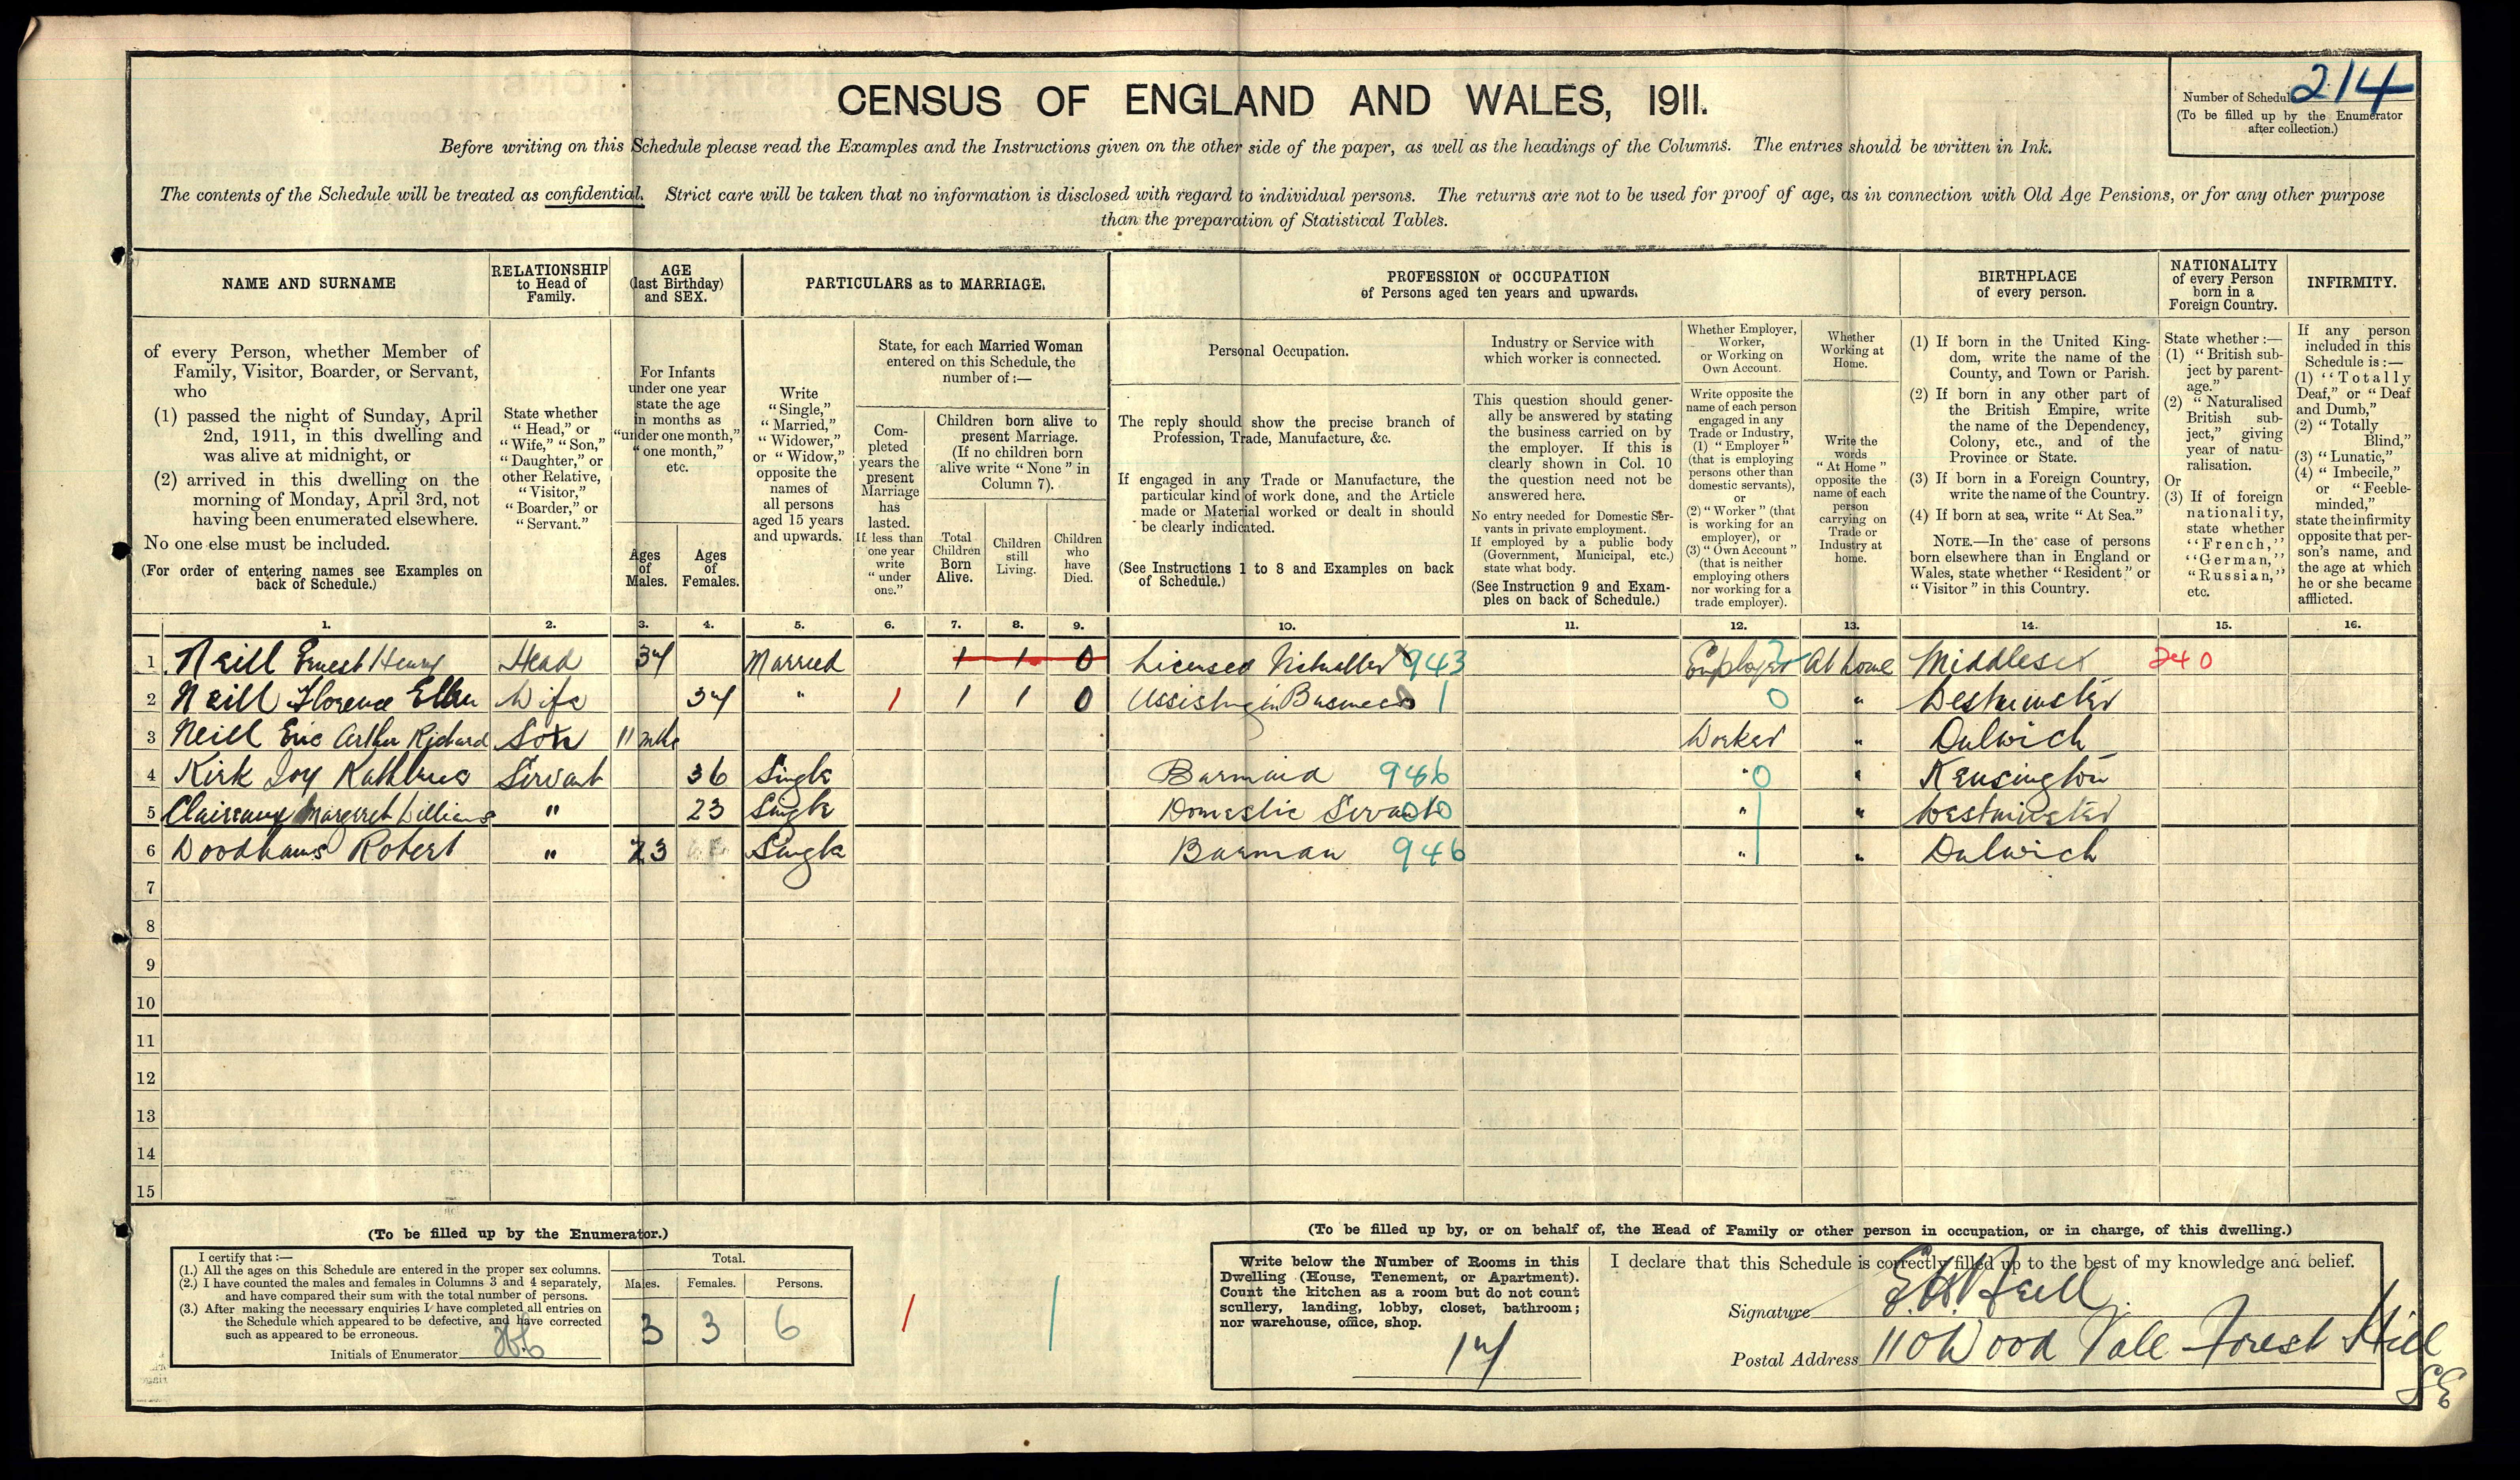 CENSUS OF ENGLAND AND WALES, 1911.
Number of Schedule 214
(To be filled up by the Enumerator
after collection.)
Before writing on this Schedule please read the Examples and the Instructions given on the other side of the paper, as well as the headings of the Columns. The entries should be written in Ink.
The contents of the Schedule will be treated as confidential. Strict care will be taken that no information is disclosed with regard to individual persons. The returns are not to be used for proof of age, as in connection with Old Age Pensions, or for any other purpose
than the preparation of Statistical Tables.
NAME AND SURNAME
of every Person, whether Member of
Family, Visitor, Boarder, or Servant,
who
(1) passed the night of Sunday, April
2nd, 1911, in this dwelling and
was alive at midnight, or
(2) arrived in this dwelling on the
morning of Monday, April 3rd, not
having been enumerated elsewhere.
No one else must be included.
(For order of entering names see Examples on
back of Schedule.)
RELATIONSHIP
to Head of
Family.
State whether
"Head," or
"Wife," "Son,"
"Daughter," or
other Relative,
"Visitor,"
"Boarder," or
"Servant."
AGE
(last Birthday)
and SEX.
For Infants
under one year
state the age
in months as
"under one month,"
"one month,"
etc.
Ages
of
Males.
Ages
of
Females.
PARTICULARS as to MARRIAGE.
Write
"Single,"
"Married,"
"Widower,"
or "Widow,"
opposite the
names of
all persons
aged 15 years
and upwards.
State, for each Married Woman
entered on this Schedule, the
number of :—
Com-
pleted
years the
present
Marriage
has
lasted.
If less than
one year
write
"under
one."
Children born alive to
present Marriage.
(If no children born
alive write "None" in
Column 7).
Total
Children
Born
Alive.
Children
still
Living.
Children
who
have
Died.
PROFESSION or OCCUPATION
of Persons aged ten years and upwards.
Personal Occupation.
The reply should show the precise branch of
Profession, Trade, Manufacture, &c.
If engaged in any Trade or Manufacture, the
particular kind of work done, and the Article
made or Material worked or dealt in should
be clearly indicated.
(See Instructions 1 to 8 and Examples on back
of Schedule.)
Industry or Service with
which worker is connected.
This question should gener-
ally be answered by stating
the business carried on by
the employer. If this is
clearly shown in Col. 10
the question need not be
answered here.
No entry needed for Domestic Ser-
vants in private employment.
If employed by a public body
(Government, Municipal, etc.)
state what body.
(See Instruction 9 and Exam-
ples on back of Schedule.)
Whether Employer,
Worker,
or Working on
Own Account.
Write opposite the
name of each person
engaged in any
Trade or Industry,
(1) "Employer"
(that is employing
persons other than
domestic servants),
or
(2) "Worker" (that
is working for an
employer), or
(3) "Own Account"
(that is neither
employing others
nor working for a
trade employer).
Whether
Working at
Home.
Write the
words
"At Home"
opposite the
name of each
person
carrying on
Trade or
Industry at
home.
BIRTHPLACE
of every person.
(1) If born in the United King-
dom, write the name of the
County, and Town or Parish.
(2) If born in any other part of
the British Empire, write
the name of the Dependency,
Colony, etc., and of the
Province or State.
(3) If born in a Foreign Country,
write the name of the Country.
(4) If born at sea, write "At Sea."
NOTE.—In the case of persons
born elsewhere than in England or
Wales, state whether "Resident" or
"Visitor" in this Country.
NATIONALITY
of every Person
born in a
Foreign Country.
State whether :—
(1) "British sub-
ject by parent-
age."
(2) "Naturalised
British sub-
ject," giving
year of natu-
ralisation.
Or
(3) If of foreign
nationality,
state whether
"French,"
"German,"
"Russian,"
etc.
INFIRMITY.
If any person
included in this
Schedule is :—
(1) "Totally
Deaf," or "Deaf
and Dumb,"
(2) "Totally
Blind,"
(3) "Lunatic,"
(4) "Imbecile,"
or "Feeble-
minded,"
state the infirmity
opposite that per-
son's name, and
the age at which
he or she became
afflicted.
1. 2. 3. 4. 5. 6. 7. 8. 9. 10. 11. 12. 13. 14. 15. 16.
1 Neill Ernest Henry Head 34 Married 1 1 0 Licensed Victualler 943 Employer At home Middlesex 240
2 Neill Florence Ellen Wife 34 " 1 1 1 0 Assisting in Business 1 0 " Westminster
3 Neill Eric Arthur Richard Son 11 mths Worker " Dulwich
4 Kirk Joy Servant 36 Single Barmaid 946 " 0 " Kensington
5 Margaret " 23 Single Domestic Servant " 1 " Westminster
6 Woodhams Robert " 23 Single Barman 946 " 1 " Dulwich
7
8
9
10
11
12
13
14
15
(To be filled up by the Enumerator.)
I certify that :—
(1.) All the ages on this Schedule are entered in the proper sex columns.
(2.) I have counted the males and females in Columns 3 and 4 separately,
and have compared their sum with the total number of persons.
(3.) After making the necessary enquiries I have completed all entries on
the Schedule which appeared to be defective, and have corrected
such as appeared to be erroneous.
Initials of Enumerator
Total.
Males. Females. Persons.
3 3 6
1 1
(To be filled up by, or on behalf of, the Head of Family or other person in occupation, or in charge, of this dwelling.)
Write below the Number of Rooms in this
Dwelling (House, Tenement, or Apartment).
Count the kitchen as a room but do not count
scullery, landing, lobby, closet, bathroom;
nor warehouse, office, shop.
14
I declare that this Schedule is correctly filled up to the best of my knowledge and belief.
Signature E.H. Neill
Postal Address 110 Wood Vale Forest Hill
SE